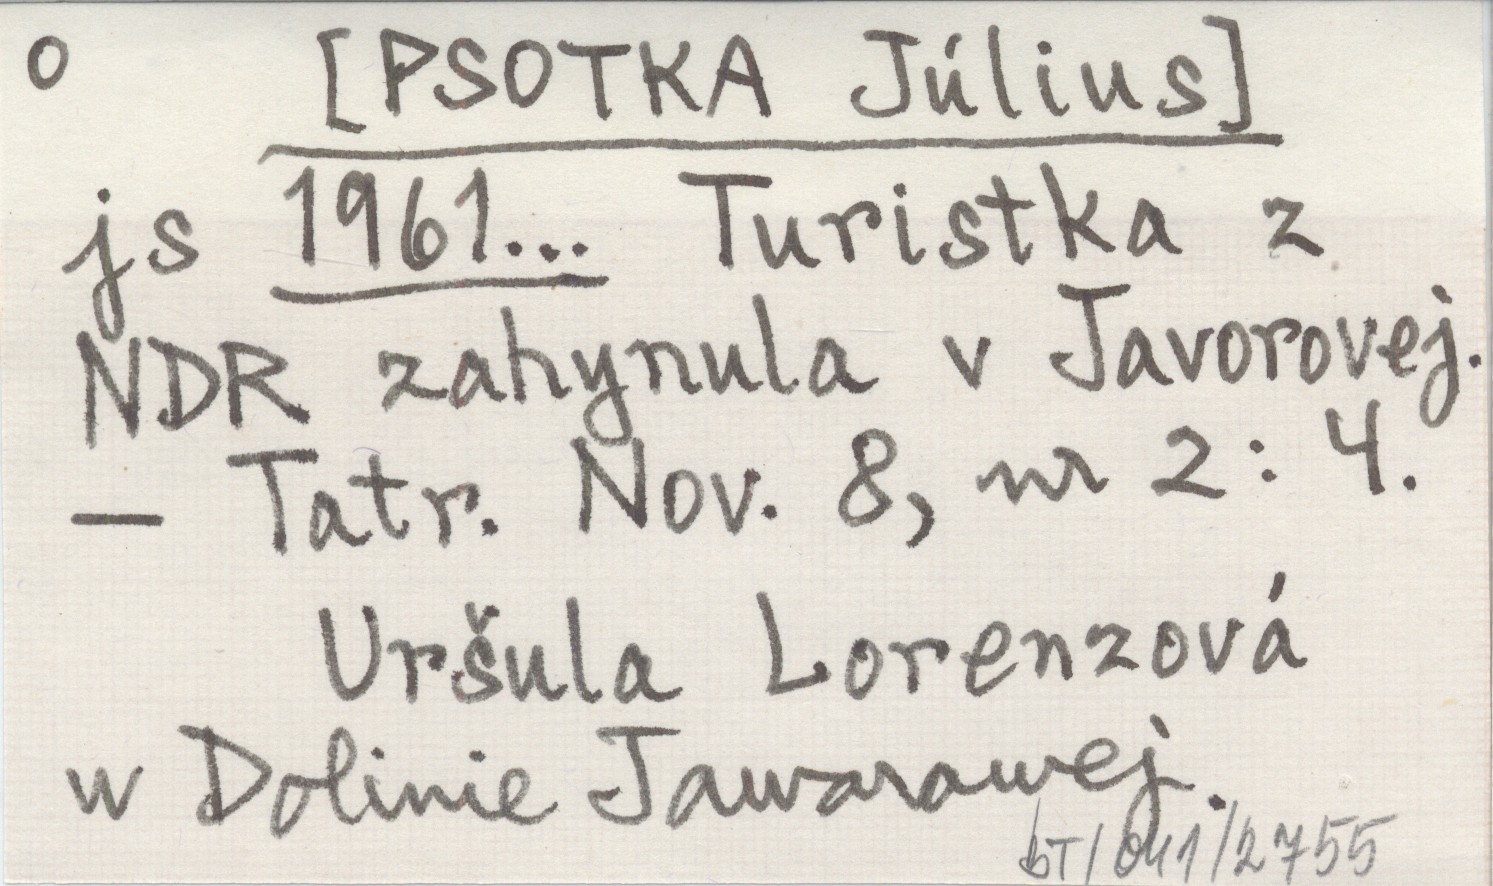 o [PSOTKA Július]
js 1961... Turistka z
NDR zahynula v Javorovej.
— Tatr. Nov. 8, nr 2 : 4.
Uršula Lorenzová
w Dolinie Jaworowej.
bT/041/2755